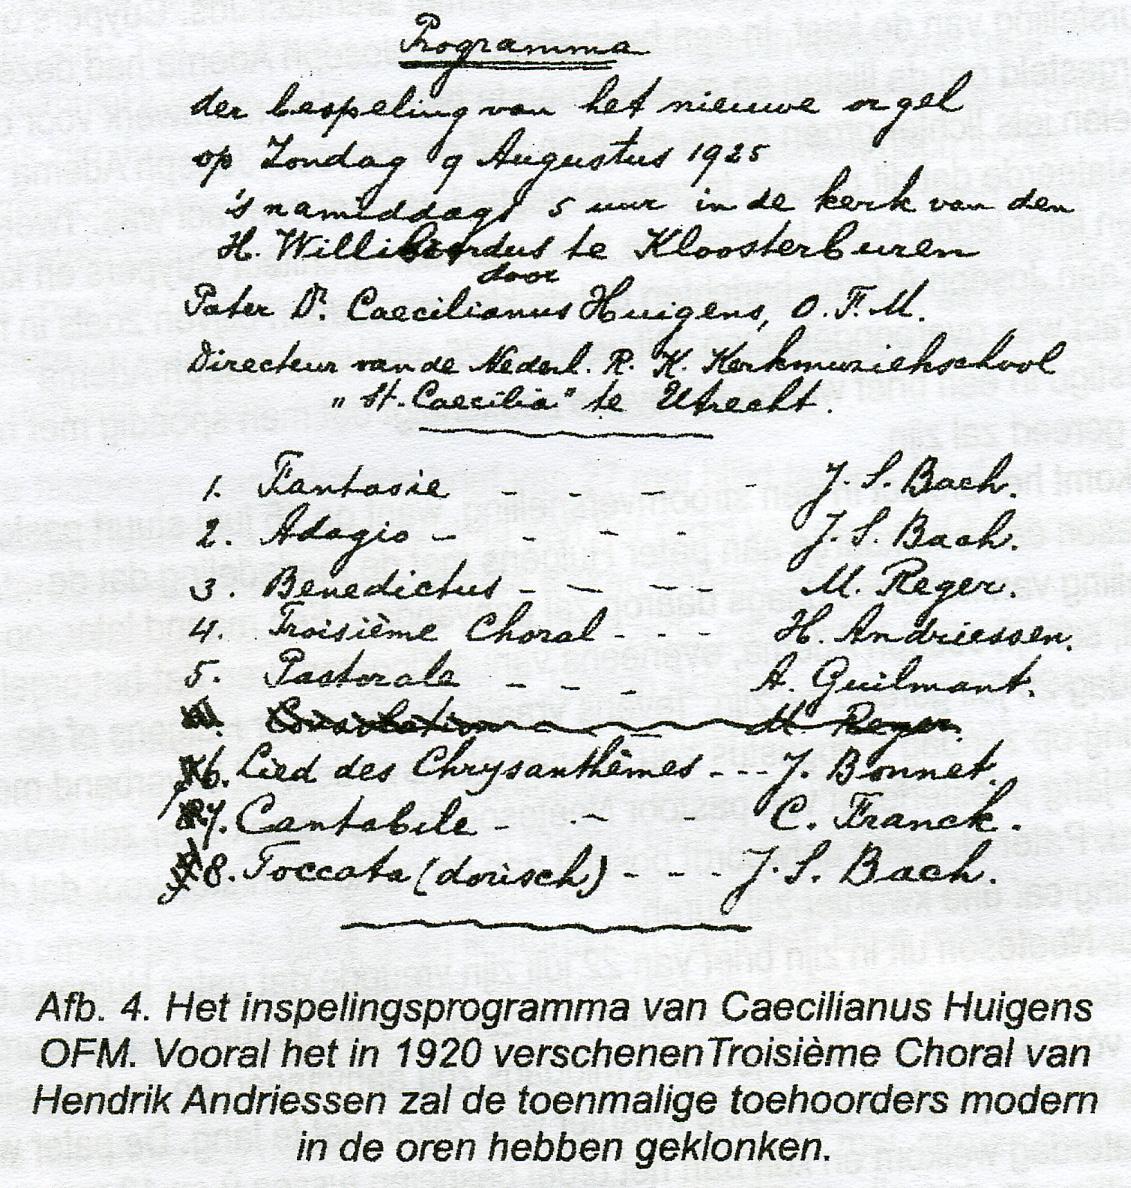 Programma
der bespeling van het nieuwe orgel
op Zondag 9 Augustus 1925
's namiddags 5 uur in de kerk van den
H. Willibrordus te Kloosterburen
door
Pater Dr. Caecilianus Huigens, O.F.M.
Directeur van de Nederl. R. K. Kerkmuziekschool
"St. Caecilia" te Utrecht.
1. Fantasie - - - - J. S. Bach.
2. Adagio - - - - J. S. Bach.
3. Benedictus - - - - M. Reger.
4. Troisième Choral - - - H. Andriessen.
5. Pastorale - - - A. Guilmant.
Consolation M. Reger.
6. Lied des Chrysanthèmes - - - J. Bonnet.
7. Cantabile - - - C. Franck.
8. Toccata (dorisch) - - - J. S. Bach.
Afb. 4. Het inspelingsprogramma van Caecilianus Huigens
OFM. Vooral het in 1920 verschenenTroisième Choral van
Hendrik Andriessen zal de toenmalige toehoorders modern
in de oren hebben geklonken.